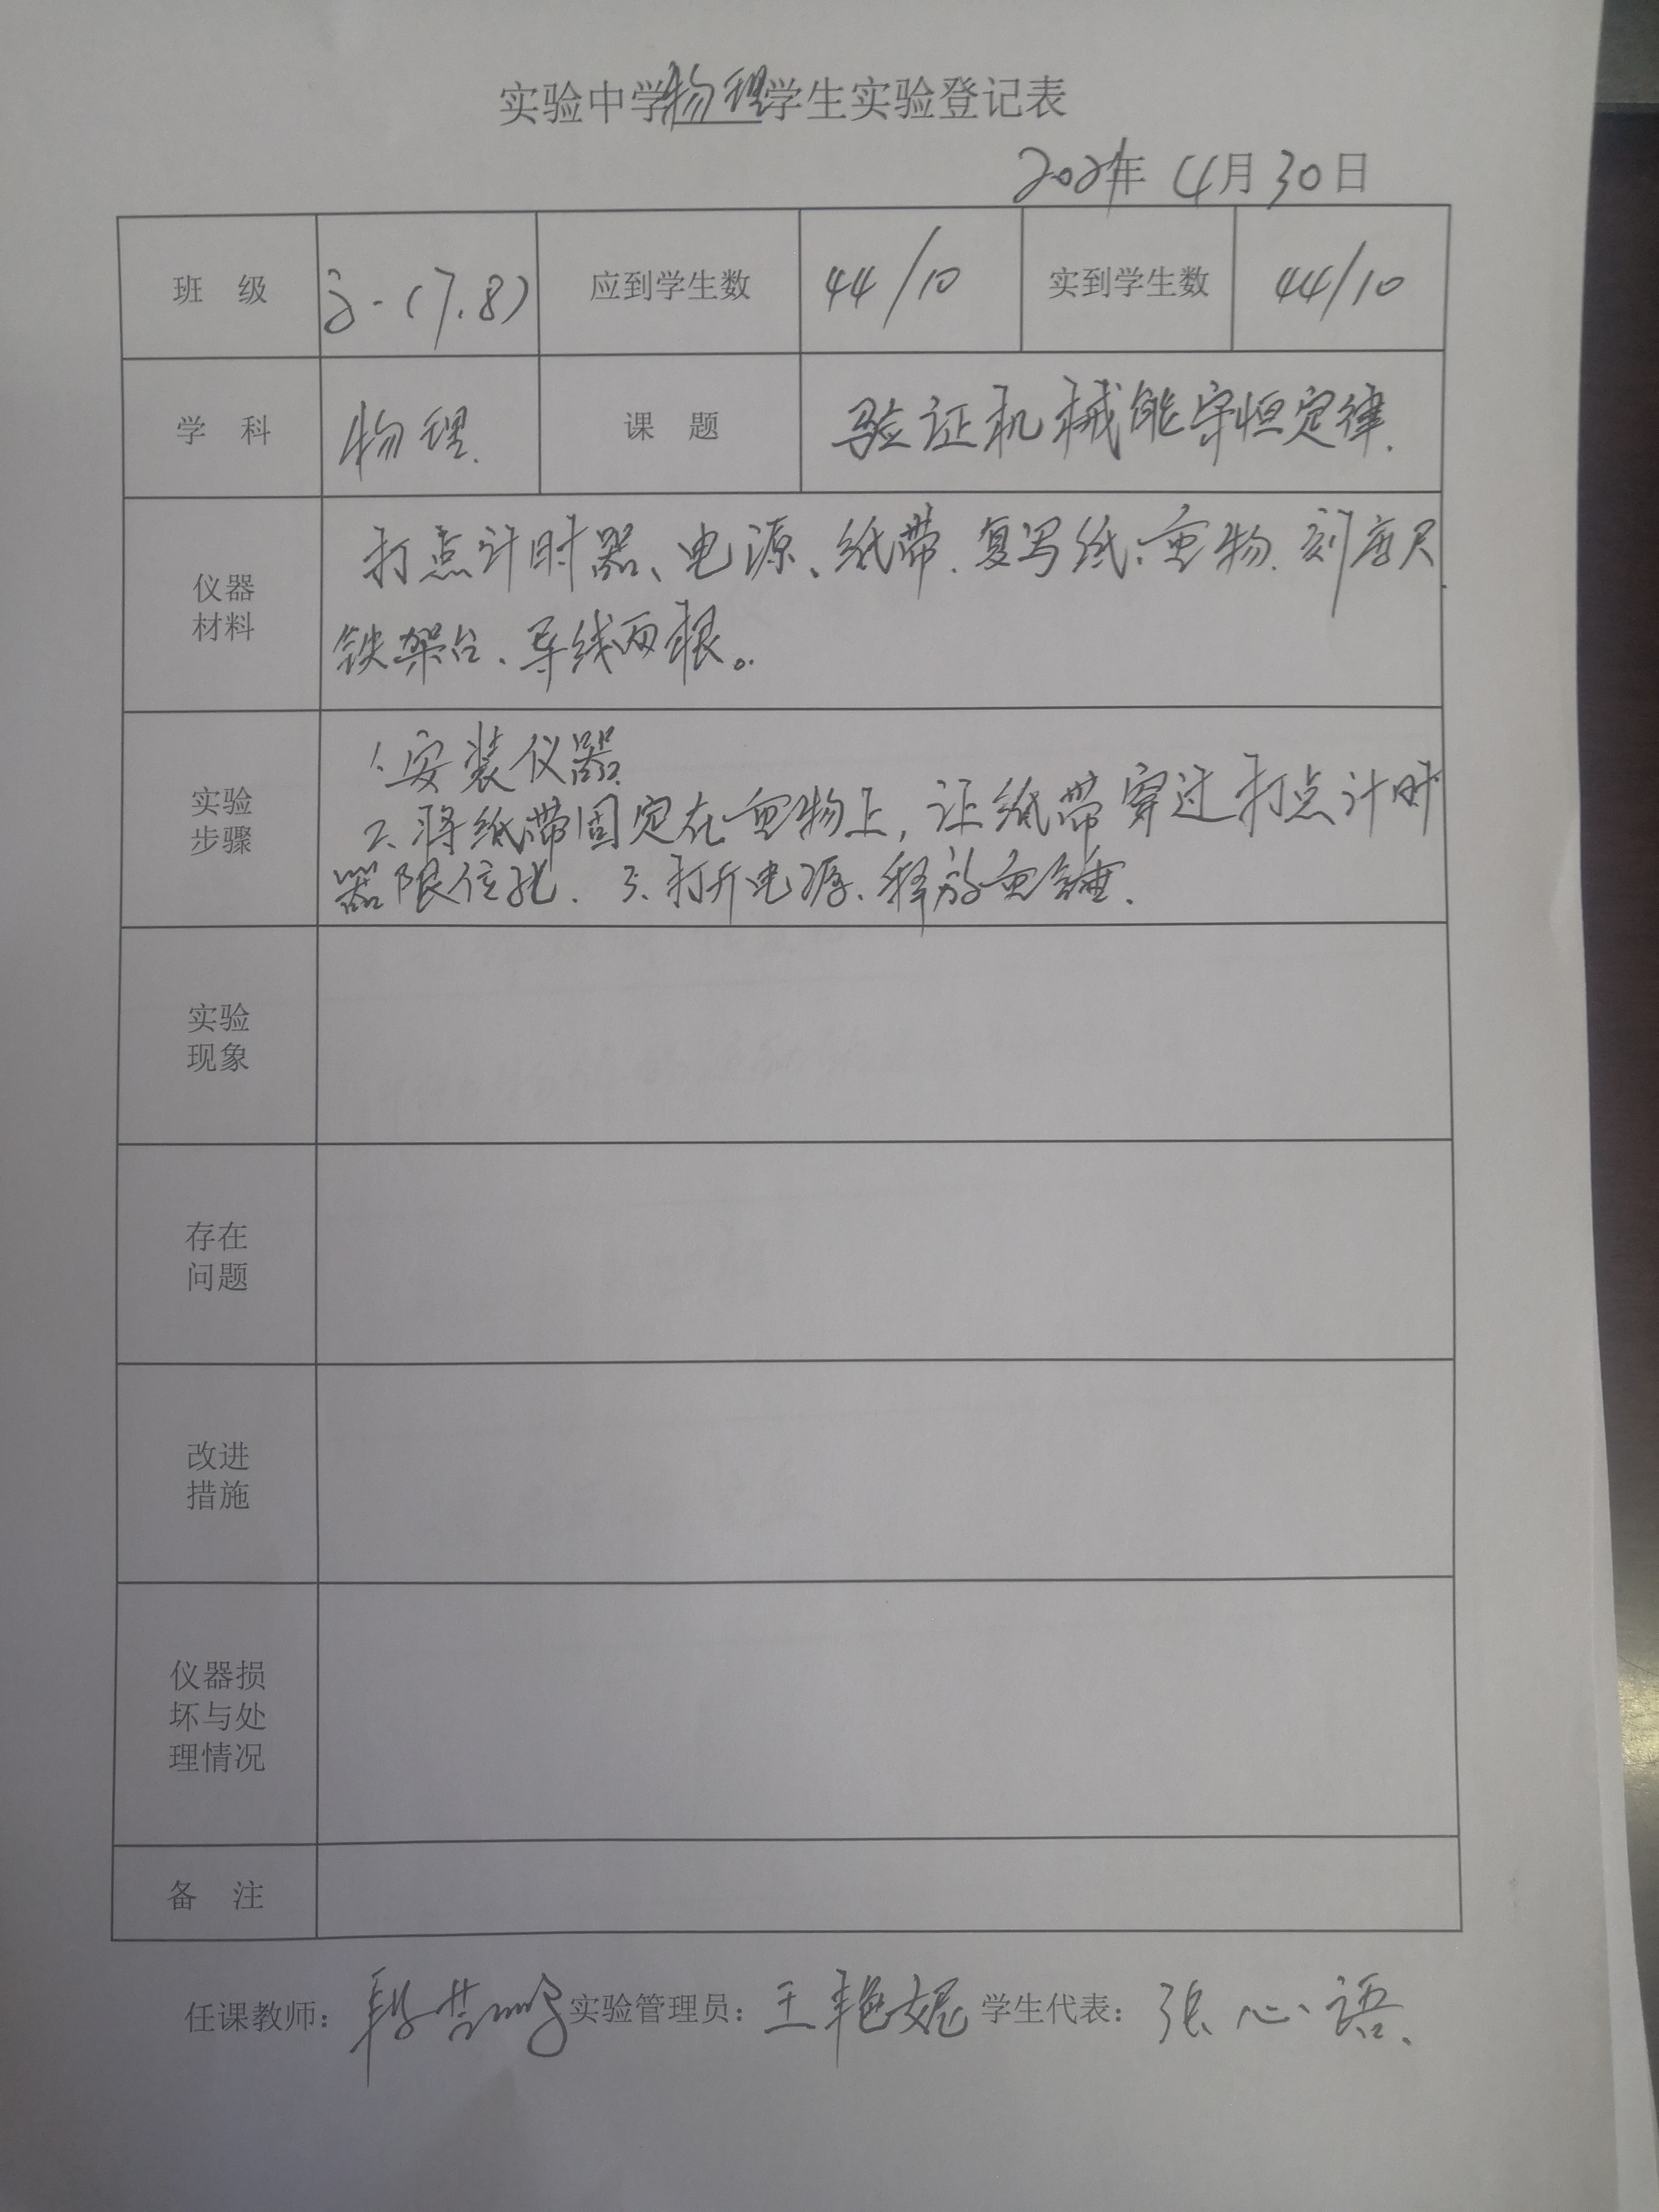 实验中学物理学生实验登记表
2021年 4月30日
班 级 高一(7.8) 应到学生数 44/10 实到学生数 44/10
学 科 物理. 课 题 验证机械能守恒定律.
仪器
材料
打点计时器、电源、纸带、复写纸、重物、刻度尺
铁架台、导线两根。
实验
步骤
1.安装仪器
2.将纸带固定在重物上,让纸带穿过打点计时
器限位孔. 3.打开电源、释放重锤.
实验
现象
存在
问题
改进
措施
仪器损
坏与处
理情况
备 注
任课教师: 实验管理员:王艳妮 学生代表:张心语.